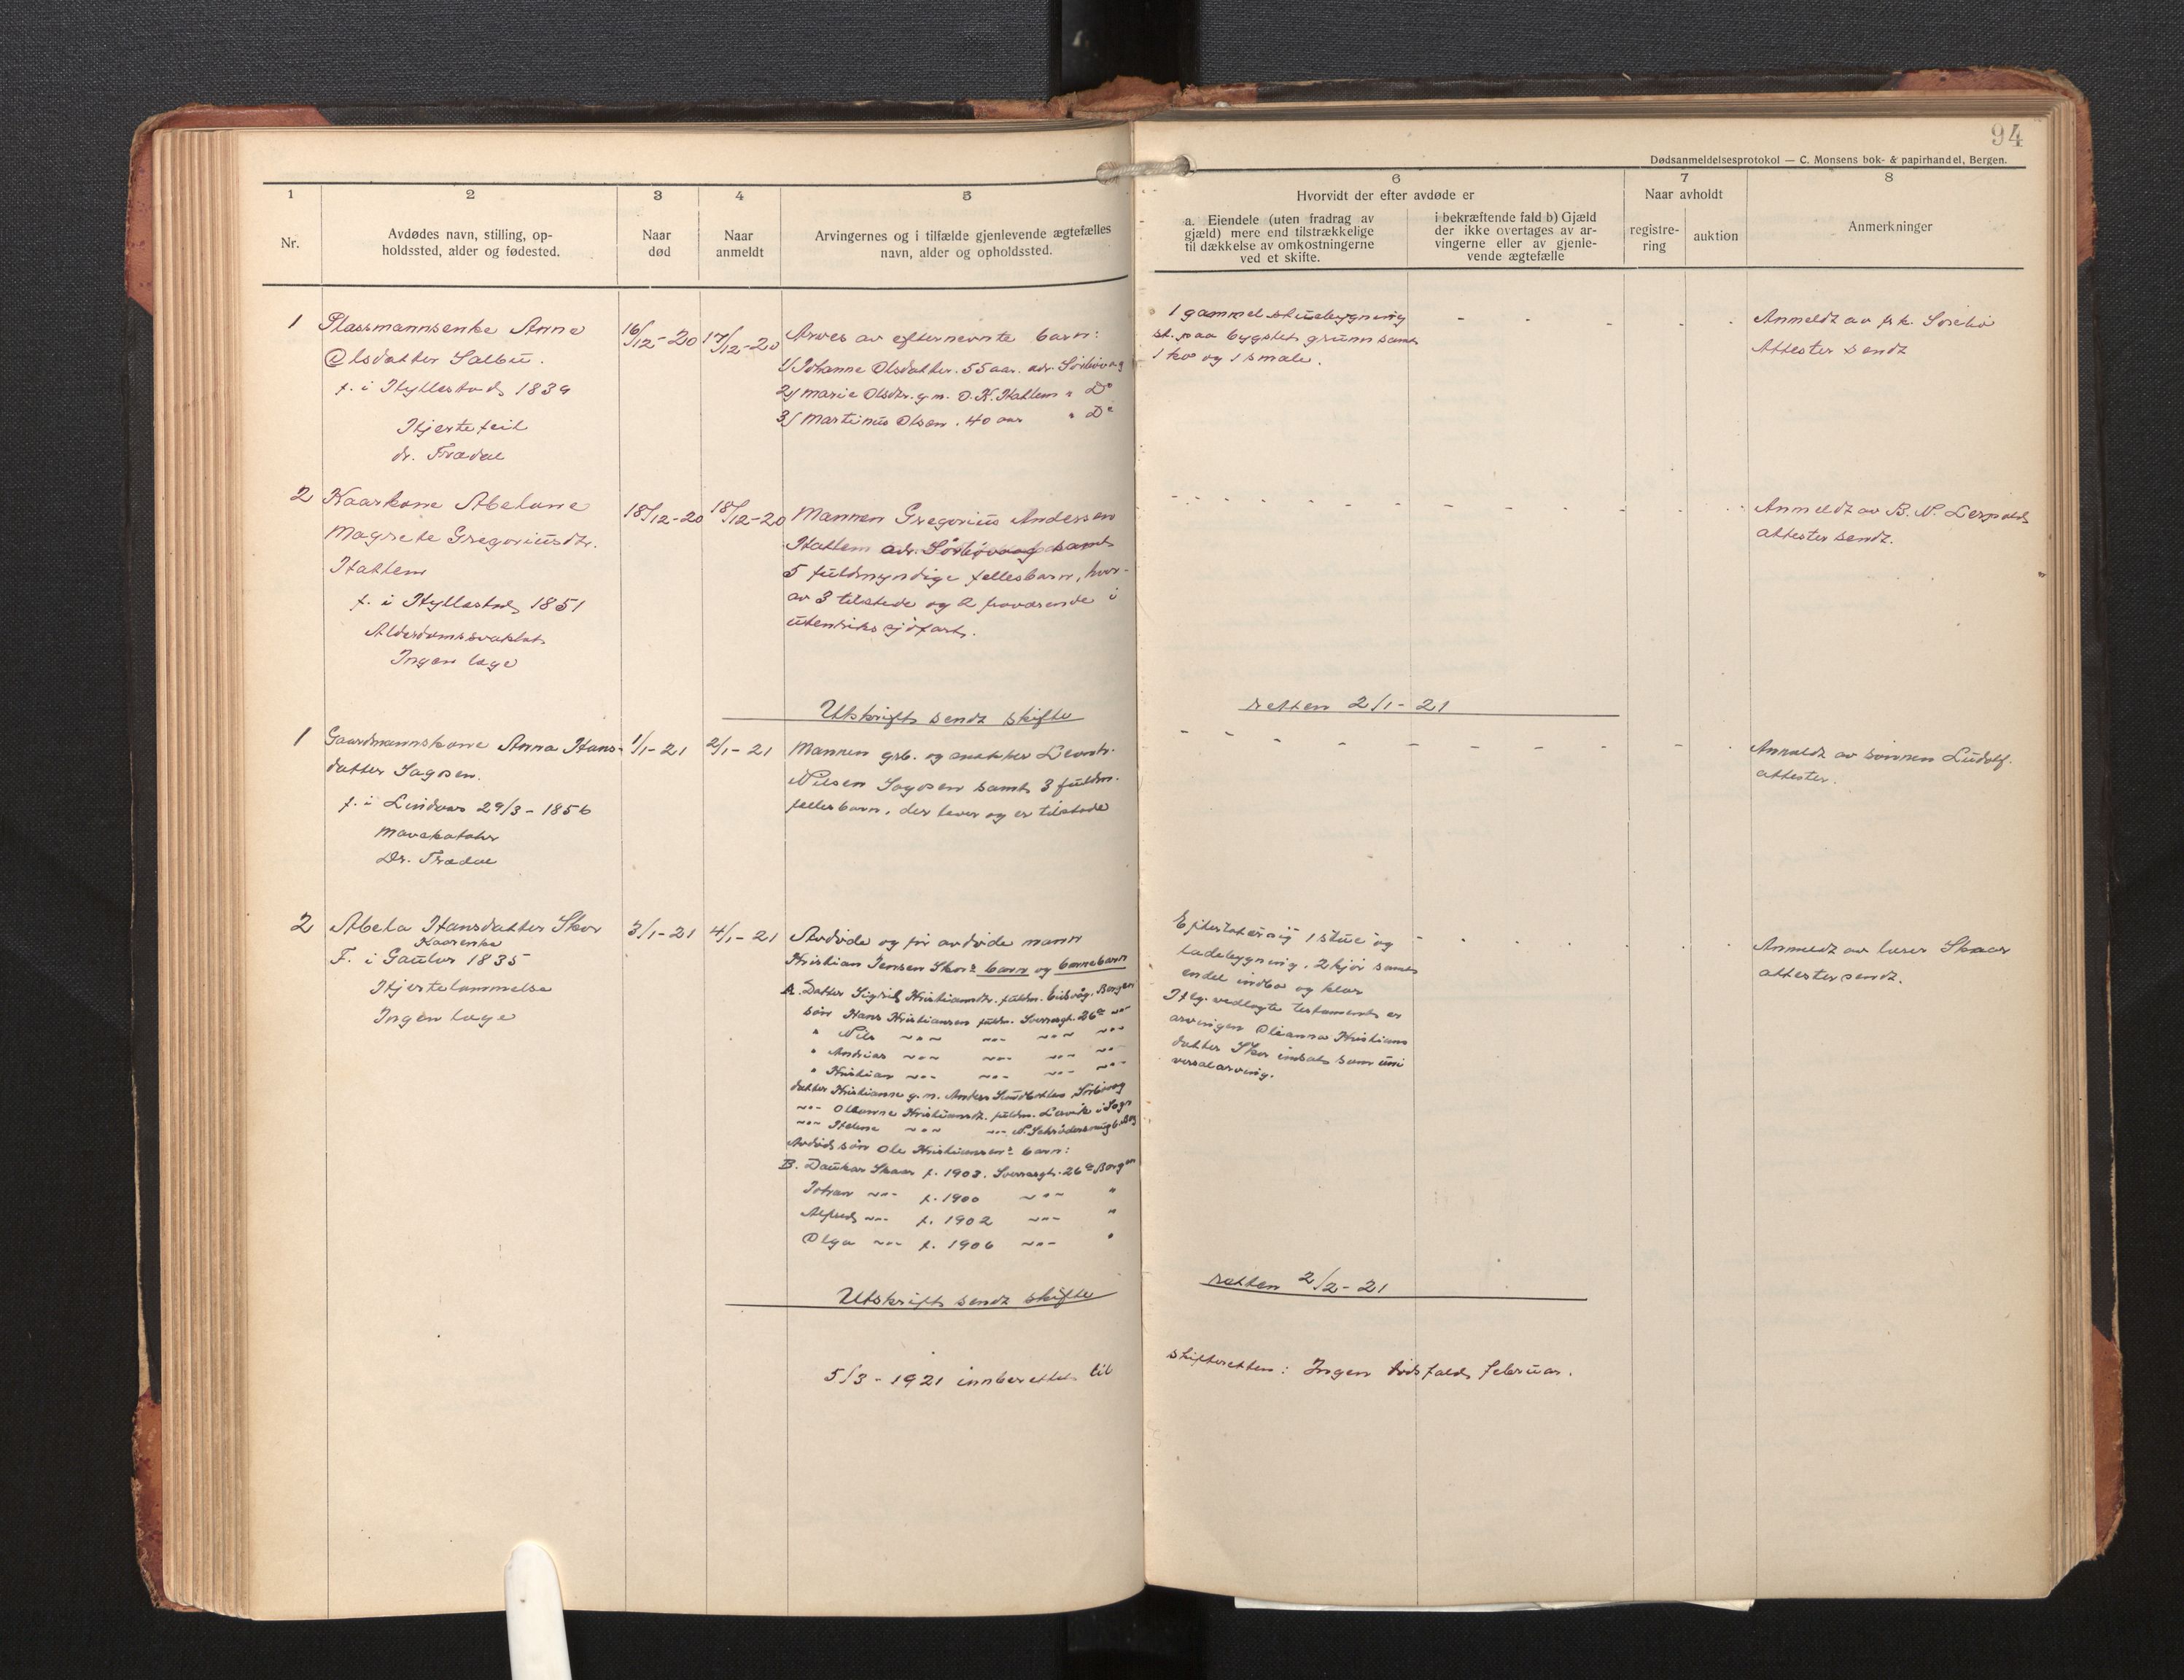 94
Dødsanmeldelsesprotokol — C. Monsens bok- & papirhandel, Bergen.
1 2 3 4 5 6 7 8
Nr.
Avdødes navn, stilling, op-
holdssted, alder og fødested.
Naar
død
Naar
anmeldt
Arvingernes og i tilfælde gjenlevende ægtefælles
navn, alder og opholdssted.
Hvorvidt der efter avdøde er
a. Eiendele (uten fradrag av
gjæld) mere end tilstrækkelige
til dækkelse av omkostningerne
ved et skifte.
i bekræftende fald b) Gjæld
der ikke overtages av ar-
vingerne eller av gjenle-
vende ægtefælle
Naar avholdt
registre-
ring
auktion
Anmerkninger
1
Plassmannsenke Anne
Olsdatter Salbu.
f. i Hyllestad 1839
Hjertefeil
dr. Trædal
16/12-20
17/12-20
Arves av efternevnte barn:
1/ Johanne Olsdatter. 55 aar. adr. Sörbövag
2/ Marie Olsdtr. g.m. O. K. Hatlem " Do
3/ Martinus Olsen. 40 aar " Do
1 gammel stuebygning
st. paa bygslet grunn samt
1 ko og 1 smale.
Anmeldt av frk. Sörebö
Attester sendt
2
Kaarkone Abelone
Magrete Gregoriusdtr.
Hatlem
f. i Hyllestad 1851
Alderdomssvakhet
Ingen læge
18/12-20
18/12-20
Mannen Gregorius Andersen
Hatlem adr. Sörbövaag samt
5 fuldmyndige fellesbarn, hvor-
av 3 tilstede og 2 fraværende i
utenriks sjöfart.
Anmeldt av B. N.
attester sendt.
Utskrift sendt skifte
retten 2/1-21
1
Gaardmannskone Anna Hans-
datter Sagosen.
f. i Lindaas 29/3-1856
Mavekatahr
Dr. Trædal
1/1-21
2/1-21
Mannen grb. og
Nilsen Sagosen samt 3 fuldm.
fellesbarn, der lever og er tilstede
Anmeldt av sönnen Ludolf.
attester.
2
Abela Hansdatter Skor
Kaarenke
F. i Gaular 1835
Hjertelammelse
Ingen læge
3/1-21
4/1-21
Avdöde og för avdöde mann
Kristian Jensen Skors barn og barnebarn
A. Datter Sigrid Kristiansdtr. fuldm. Eidsvåg. Bergen
sön Hans Kristiansen fuldm. Sverresgt. 26a ~"~
" Nils ~"~ ~"~ ~"~ ~"~
" Andreas ~"~ ~"~ ~"~ ~"~
" Kristian ~"~ ~"~ ~"~ ~"~
datter Kristianne g.m. Anders Sörbövag
~"~ Oleanne Kristiansdt. fuldm. Lavik i Sogn
~"~ Helene ~"~ ~"~ N. 6. Brg
Avdöd sön Ole Kristiansens barn:
B. Skaar f. 1903. Sverresgt. 26a Bergen
Johan ~"~ f. 1900 ~"~ "
Alfred ~"~ f. 1902 ~"~ "
Olga ~"~ f. 1906 ~"~ "
Efterlot sig 1 stue og
ladebygning, 2 kjör samt
endel indbo og klær
Iflg. vedlagte testament er
arvingen Oleanna Kristians
datter Skor indsat som uni
versalarving.
Anmeldt av lærer Skaar
attester sendt.
Utskrift sendt skifte
retten 2/2-21
5/3-1921 innberettet til
skifteretten: Ingen dödsfald februar.